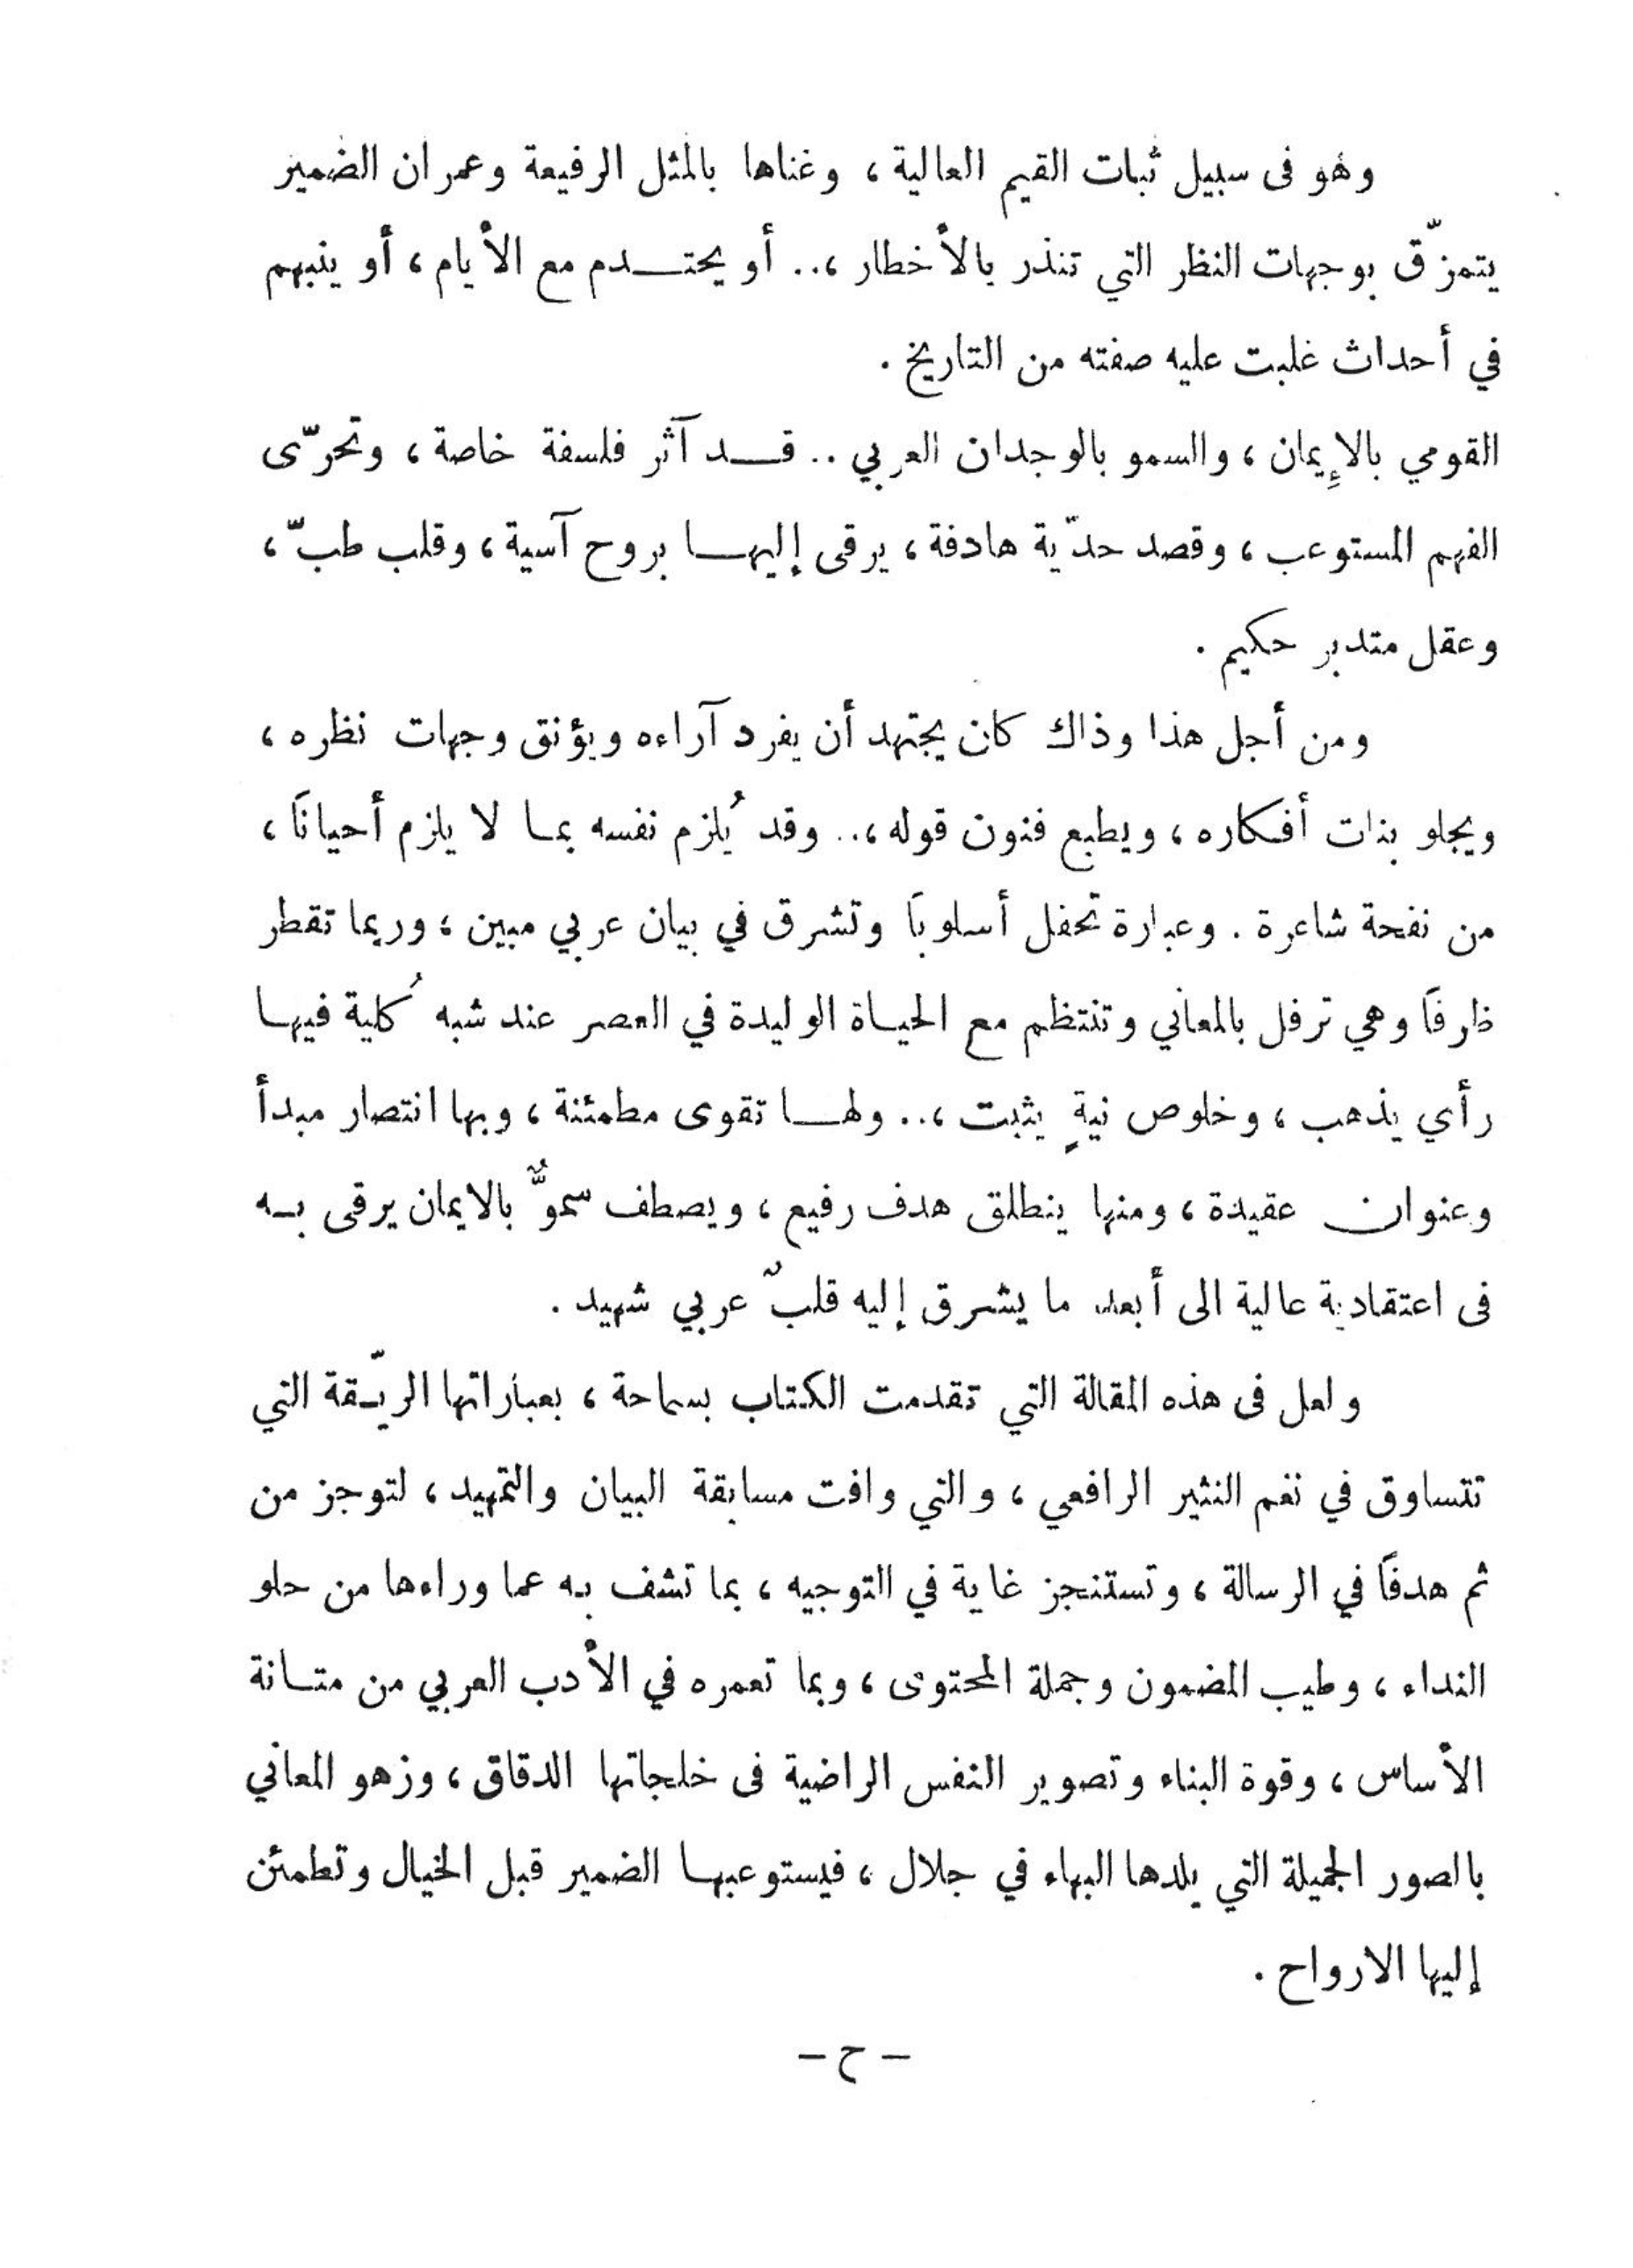 وهو فى سبيل ثبات القيم العالية ، وغناها بالمثل الرفيعة وعمران الضمير
يتمزّق بوجهات النظر التي تنذر بالأخطار ،.. أو يحتـــدم مع الأيام ، أو ينبهم
في أحداث غلبت عليه صفته من التاريخ .
القومي بالإيمان ، والسمو بالوجدان العربي .. قـــد آثر فلسفة خاصة ، وتحرّى
الفهم المستوعب ، وقصد حدّية هادفة ، يرقى إليهـــا بروح آسية ، وقلب طبّ ،
وعقل متدبر حكيم .
ومن أجل هذا وذاك كان يجتهد أن يفرد آراءه ويؤنق وجهات نظره ،
ويجلو بنات أفكاره ، ويطبع فنون قوله ،.. وقد يُلزم نفسه بمـا لا يلزم أحياناً ،
من نفحة شاعرة . وعبارة تحفل أسلوباً وتشرق في بيان عربي مبين ، وربما تقطر
ظرفاً وهي ترفل بالمعاني وتنتظم مع الحيـاة الوليدة في العصر عند شبه كُلية فيهـا
رأي يذهب ، وخلوص نيةٍ يثبت ،.. ولهـــا تقوى مطمئنة ، وبها انتصار مبدأ
وعنوان عقيدة ، ومنها ينطلق هدف رفيع ، ويصطف سموٌّ بالايمان يرقى بـه
فى اعتقادية عالية الى أبعد ما يشرق إليه قلبٌ عربي شهيد .
ولعل فى هذه المقالة التي تقدمت الكتاب بسماحة ، بعباراتها الريّـقة التي
تتساوق في نغم النثير الرافعي ، والتي وافت مسابقة البيان والتمهيد ، لتوجز من
ثم هدفاً في الرسالة ، وتستنجز غاية في التوجيه ، بما تشف به عما وراءها من حلو
النداء ، وطيب المضمون وجملة المحتوى ، وبما تعمره في الأدب العربي من متـانة
الأساس ، وقوة البناء وتصوير النفس الراضية فى خلجاتها الدقاق ، وزهو المعاني
بالصور الجميلة التي يلدها البهاء في جلال ، فيستوعبهـا الضمير قبل الخيال وتطمئن
إليها الارواح .
– ح –